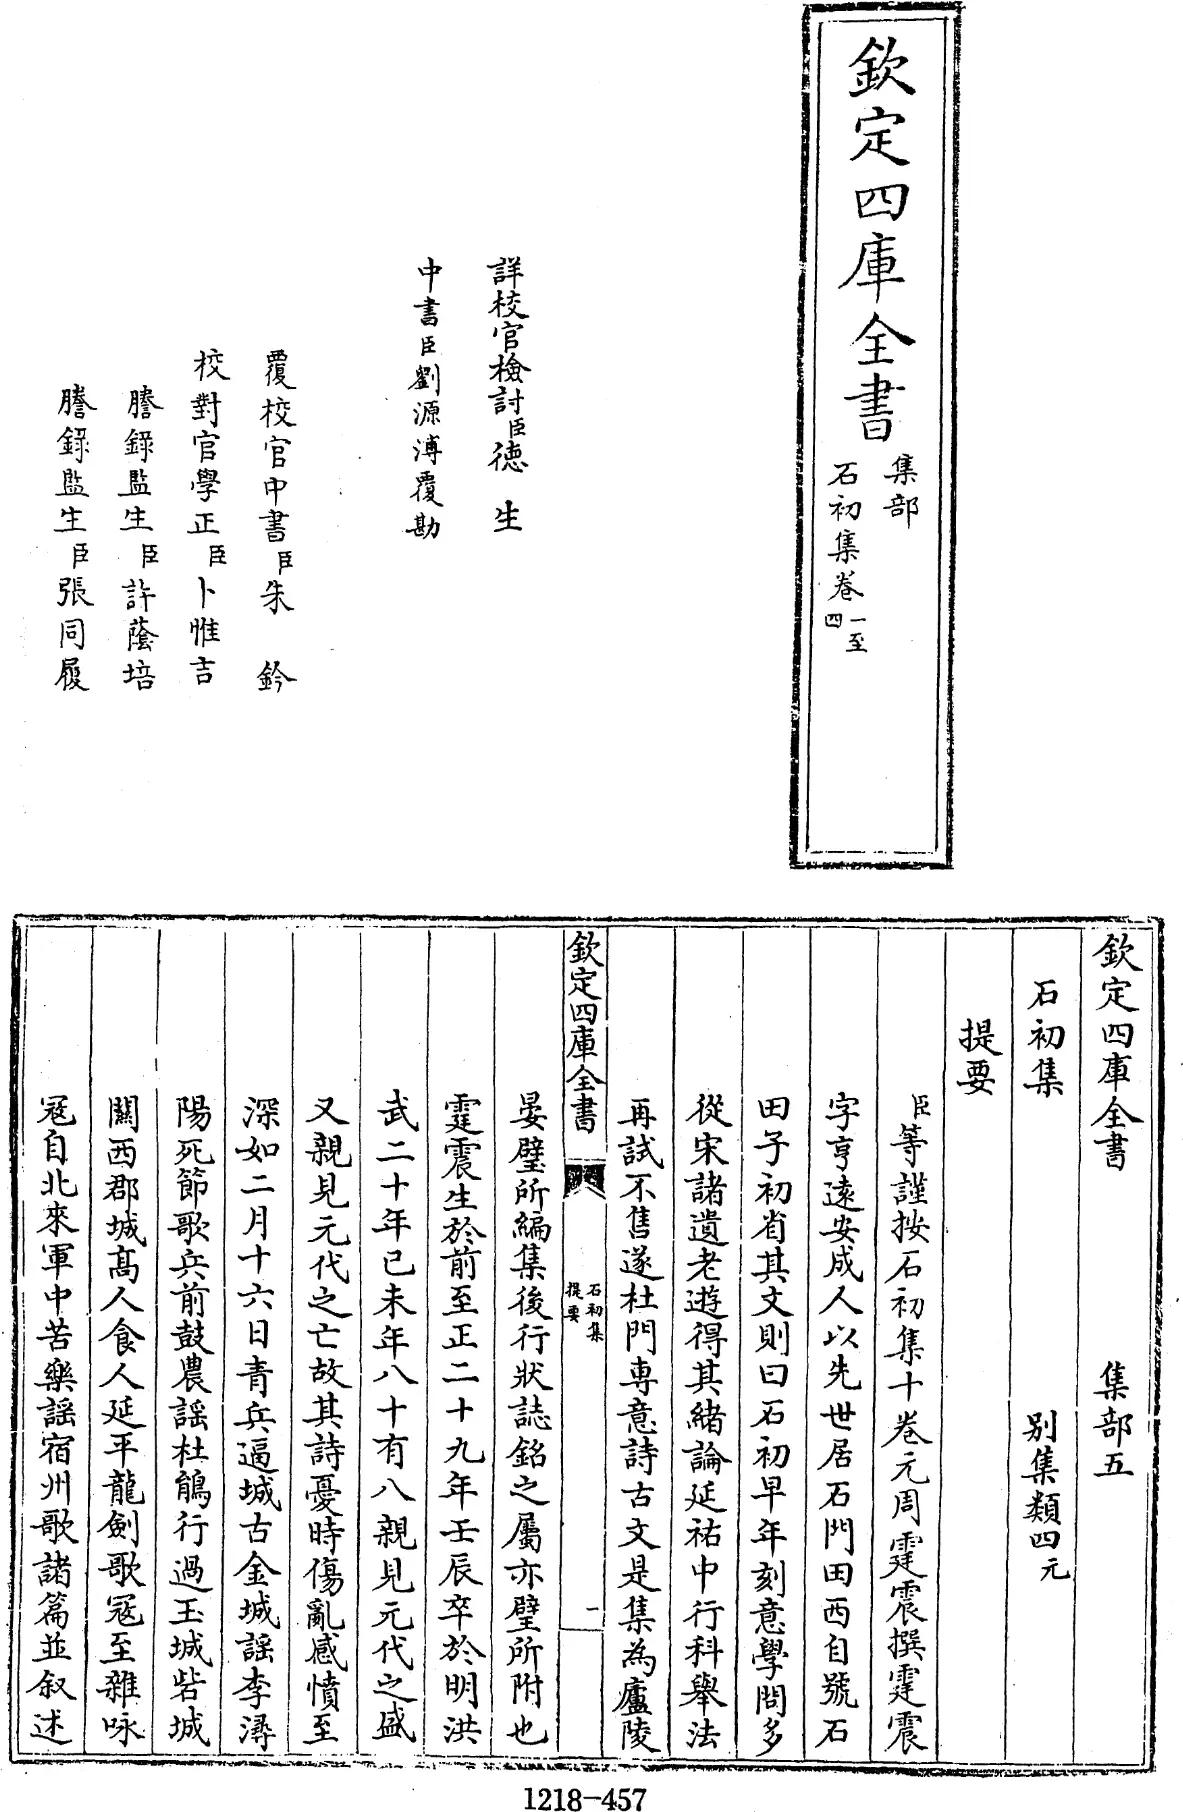 欽定四庫全書
集部
石初集卷一至四
詳校官檢討臣德生
中書臣劉源溥覆勘
覆校官中書臣朱鈐
校對官學正臣卜惟吉
謄錄監生臣許蔭培
謄錄監生臣張同履
欽定四庫全書 集部五
石初集 別集類四元
提要
臣等謹按石初集十卷元周霆震撰霆震
字亨遠安成人以先世居石門田西自號石
田子初省其文則曰石初早年刻意學問多
從宋諸遺老遊得其緒論延祐中行科舉法
再試不售遂杜門專意詩古文是集為廬陵
欽定四庫全書
石初集
提要
一
晏璧所編集後行狀誌銘之屬亦璧所附也
霆震生於前至正二十九年壬辰卒於明洪
武二十年己未年八十有八親見元代之盛
又親見元代之亡故其詩憂時傷亂感憤至
深如二月十六日青兵逼城古金城謠李潯
陽死節歌兵前鼓農謠杜鵑行過玉城砦城
關西郡城高人食人延平龍劍歌寇至雜咏
寇自北來軍中苦樂謠宿州歌諸篇並叙述
1218-457